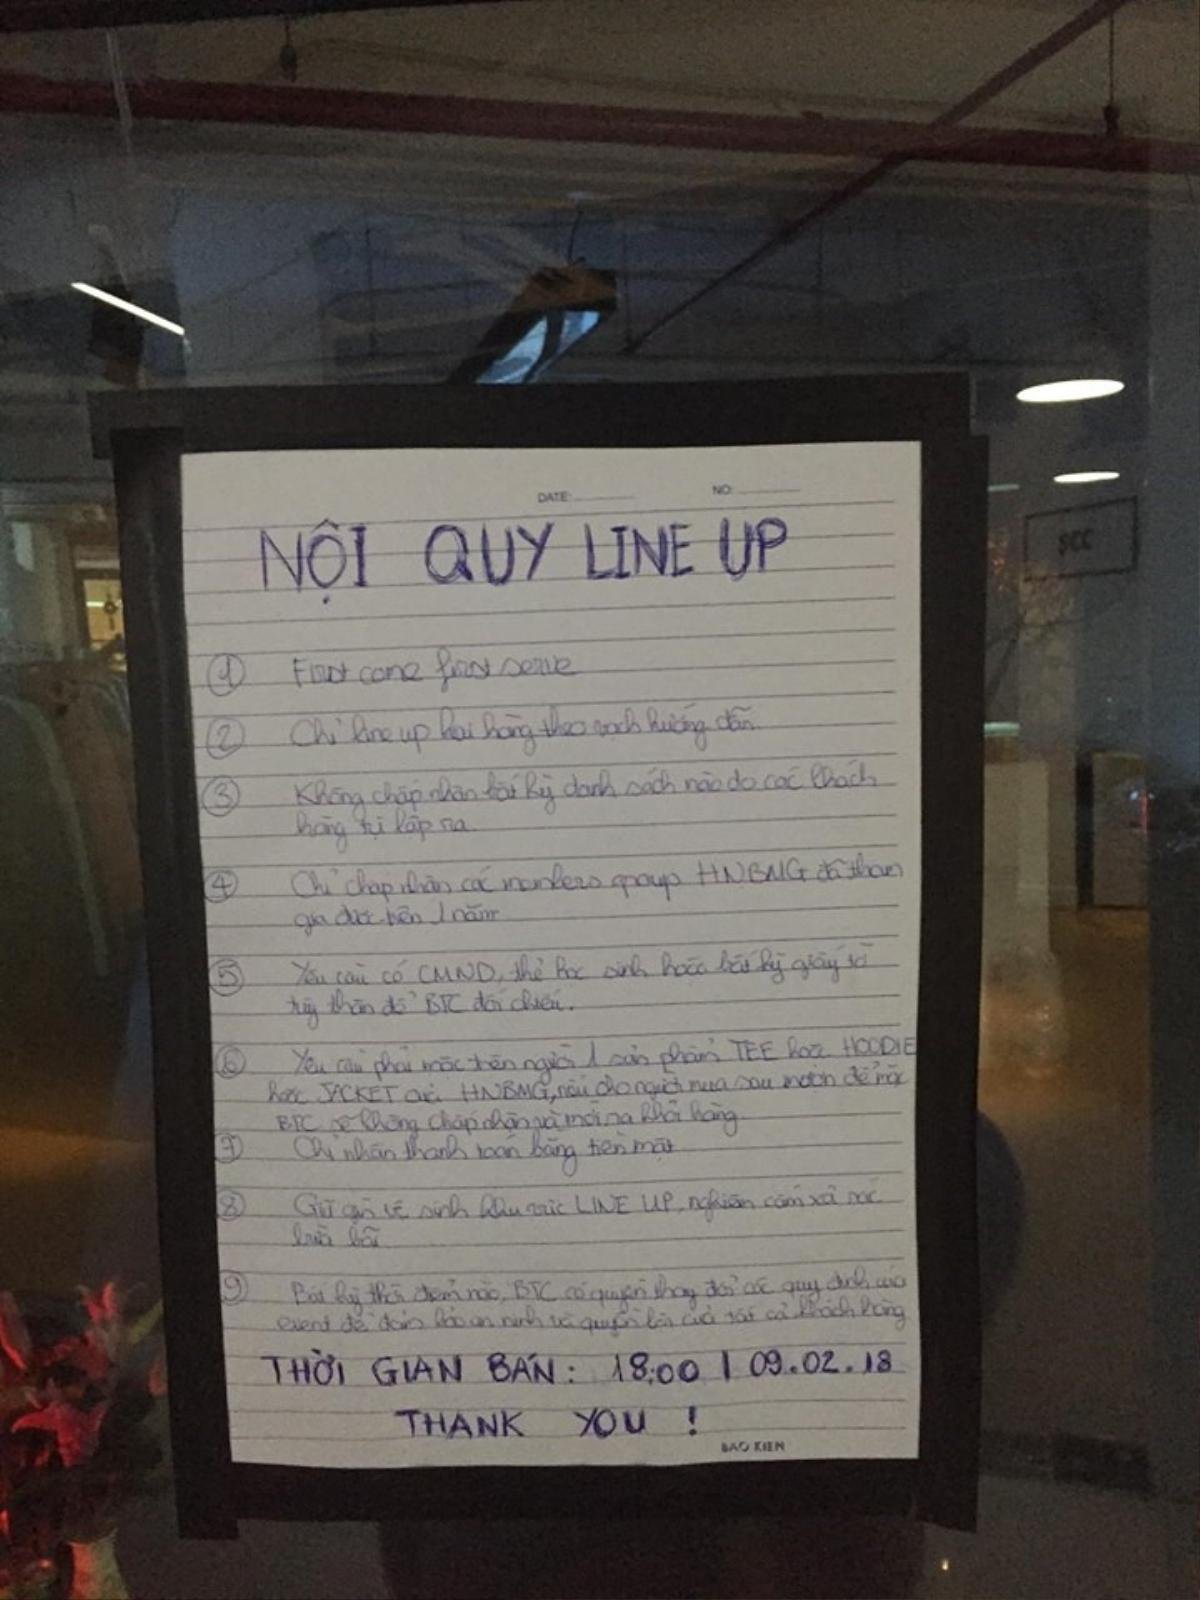 DATE: NO:
NỘI QUY LINE UP
1 First come first serve
2 Chỉ line up hai hàng theo vạch hướng dẫn.
3 Không chấp nhận bất kỳ danh sách nào do các khách
hàng tự lập ra.
4 Chỉ chấp nhận các members group HNBMG đã tham
gia được trên 1 năm
5 Yêu cầu có CMND, thẻ học sinh hoặc bất kỳ giấy tờ
tùy thân để BTC đối chiếu.
6 Yêu cầu phải mặc trên người 1 sản phẩm TEE hoặc HOODIE
hoặc JACKET của HNBMG, nếu cho người mua sau mượn để mặc
BTC sẽ không chấp nhận và mời ra khỏi hàng.
7 Chỉ nhận thanh toán bằng tiền mặt
8 Giữ gìn vệ sinh khu vực LINE UP, nghiêm cấm xả rác
bừa bãi
9 Bất kỳ thời điểm nào, BTC có quyền thay đổi các quy định của
event để đảm bảo an ninh và quyền lợi của tất cả khách hàng
THỜI GIAN BÁN: 18:00 | 09.02.18
THANK YOU !
BAO KIEN
SCC